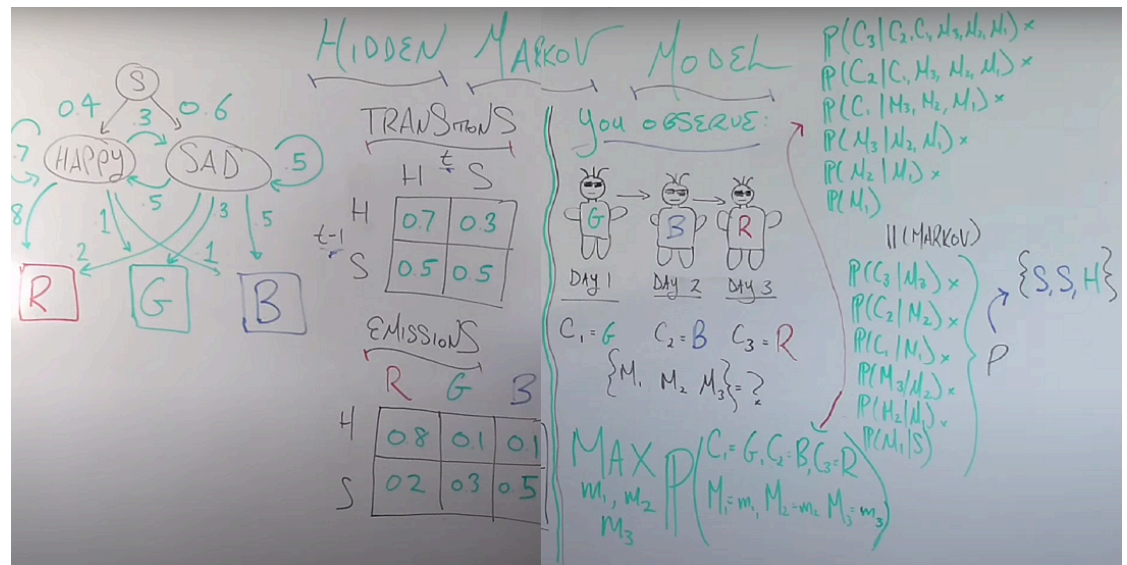 HIDDEN MARKOV MODEL
S
0.4 0.6
.3
.7 HAPPY SAD .5
.5
8 .1 .3 .5
.2 .1
R G B
TRANSITIONS
t
H S
H 0.7 0.3
t-1
S 0.5 0.5
EMISSIONS
R G B
H 0.8 0.1 0.1
S 02 0.3 0.5
YOU OBSERVE:
G B R
DAY 1 DAY 2 DAY 3
C₁=G C₂=B C₃=R
{M₁ M₂ M₃}=?
MAX P(C₁=G, C₂=B, C₃=R
m₁, m₂ M₁=m₁, M₂=m₂ M₃=m₃)
m₃
P(C₃|C₂,C₁,M₃,M₂,M₁)×
P(C₂|C₁,M₃,M₂,M₁)×
P(C₁|M₃,M₂,M₁)×
P(M₃|M₂,M₁)×
P(M₂|M₁)×
P(M₁)
||(MARKOV)
P(C₃|M₃)×
P(C₂|M₂)×
P(C₁|M₁)×
P(M₃|M₂)×
P(M₂|M₁)×
P(M₁|S)
P
{S,S,H}